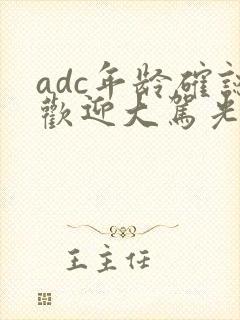 adc年龄確認
歡迎大駕光
王主任